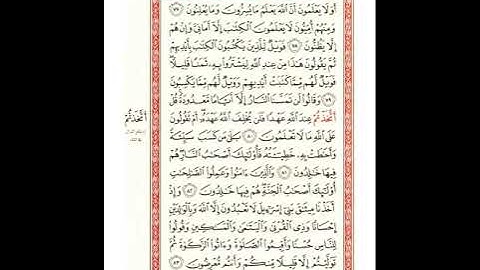 أَوَلَا يَعْلَمُونَ أَنَّ ٱللَّهَ يَعْلَمُ مَا يُسِرُّونَ وَمَا يُعْلِنُونَ ٧٧
وَمِنْهُمْ أُمِّيُّونَ لَا يَعْلَمُونَ ٱلْكِتَٰبَ إِلَّآ أَمَانِىَّ وَإِنْ هُمْ
إِلَّا يَظُنُّونَ ٧٨ فَوَيْلٌ لِّلَّذِينَ يَكْتُبُونَ ٱلْكِتَٰبَ بِأَيْدِيهِمْ
ثُمَّ يَقُولُونَ هَٰذَا مِنْ عِندِ ٱللَّهِ لِيَشْتَرُوا۟ بِهِۦ ثَمَنًا قَلِيلًا
فَوَيْلٌ لَّهُم مِّمَّا كَتَبَتْ أَيْدِيهِمْ وَوَيْلٌ لَّهُم مِّمَّا يَكْسِبُونَ
٧٩ وَقَالُوا۟ لَن تَمَسَّنَا ٱلنَّارُ إِلَّآ أَيَّامًا مَّعْدُودَةً قُلْ
أَتَّخَذْتُمْ عِندَ ٱللَّهِ عَهْدًا فَلَن يُخْلِفَ ٱللَّهُ عَهْدَهُۥٓ أَمْ تَقُولُونَ
عَلَى ٱللَّهِ مَا لَا تَعْلَمُونَ ٨٠ بَلَىٰ مَن كَسَبَ سَيِّئَةً
وَأَحَٰطَتْ بِهِۦ خَطِيٓـَٔتُهُۥ فَأُو۟لَٰٓئِكَ أَصْحَٰبُ ٱلنَّارِ هُمْ
فِيهَا خَٰلِدُونَ ٨١ وَٱلَّذِينَ ءَامَنُوا۟ وَعَمِلُوا۟ ٱلصَّٰلِحَٰتِ
أُو۟لَٰٓئِكَ أَصْحَٰبُ ٱلْجَنَّةِ هُمْ فِيهَا خَٰلِدُونَ ٨٢ وَإِذْ
أَخَذْنَا مِيثَٰقَ بَنِىٓ إِسْرَٰٓءِيلَ لَا تَعْبُدُونَ إِلَّا ٱللَّهَ وَبِٱلْوَٰلِدَيْنِ
إِحْسَانًا وَذِى ٱلْقُرْبَىٰ وَٱلْيَتَٰمَىٰ وَٱلْمَسَٰكِينِ وَقُولُوا۟
لِلنَّاسِ حُسْنًا وَأَقِيمُوا۟ ٱلصَّلَوٰةَ وَءَاتُوا۟ ٱلزَّكَوٰةَ ثُمَّ
تَوَلَّيْتُمْ إِلَّا قَلِيلًا مِّنكُمْ وَأَنتُم مُّعْرِضُونَ ٨٣
أَتَّخَذتُّمْ